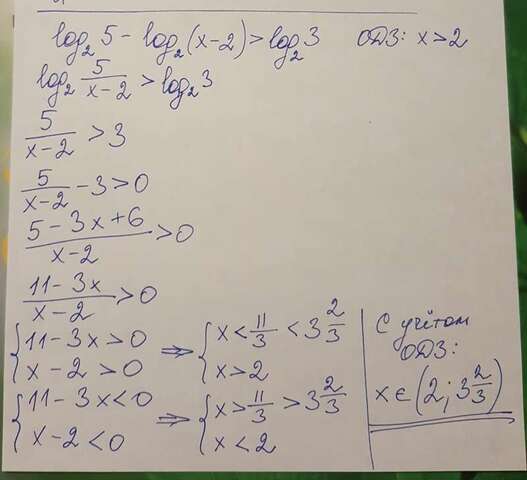 log₂5 - log₂(x-2) > log₂3 ОДЗ: x>2
log₂ 5/(x-2) > log₂3
5/(x-2) > 3
5/(x-2) - 3 > 0
(5-3x+6)/(x-2) > 0
(11-3x)/(x-2) > 0
{ 11-3x>0 ⇒ { x < 11/3 < 3 2/3
x-2>0 x>2
{ 11-3x<0 ⇒ { x > 11/3 > 3 2/3
x-2<0 x<2
С учётом
ОДЗ:
x∈(2; 3 2/3)